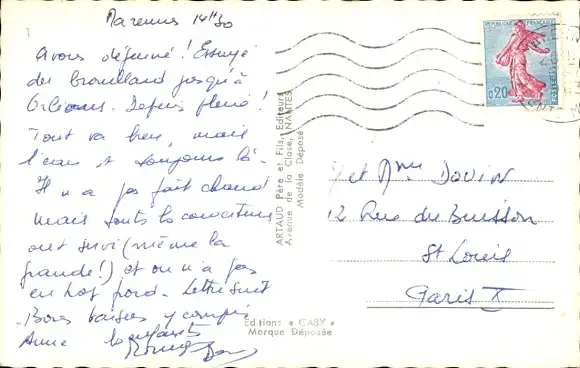 Marennes 14H30
Avons déjeuné! Essuyé
du brouillard jusqu'à
Orléans. Depuis pluie.
Tout va bien, mais
l'eau est toujours là.
Il n'a pas fait chaud
mais toute la
ont suivi (même la
grande!) et on n'a pas
eu trop froid. Lettre suit
Bons baisers y compris
Anne
ARTAUD Père et Fils, Editeurs
Avenue de la Close, NANTES
Modèle Déposé
Editions « GABY »
Marque Déposée
REPUBLIQUE FRANÇAISE
0,20
POSTES
M et Mme DOUIN
12 Rue du Buisson
St Louis
Paris X